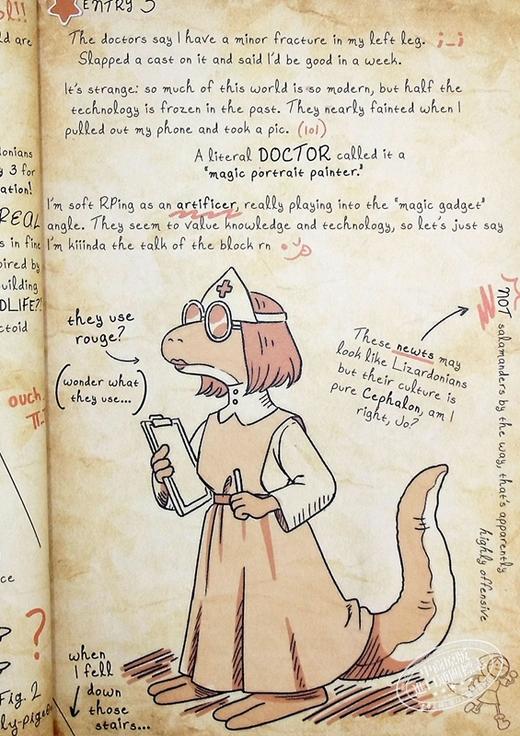 ol!!
ENTRY 3
The doctors say I have a minor fracture in my left leg. ;_;
Slapped a cast on it and said I'd be good in a week.
It's strange: so much of this world is so modern, but half the
technology is frozen in the past. They nearly fainted when I
pulled out my phone and took a pic. (lol)
A literal DOCTOR called it a
"magic portrait painter."
I'm soft RPing as an artificer, really playing into the "magic gadget"
angle. They seem to value knowledge and technology, so let's just say
I'm kiiinda the talk of the block rn
they use
rouge?
(wonder what
they use...)
These newts may
look like Lizardonians
but their culture is
pure Cephalon, am I
right, Jo?
NOT salamanders by the way, that's apparently
highly offensive
when
I fell
down
those
stairs...
ld are
onians
y 3 for
ation!
REAL
s in fine
pired by
uilding
DLIFE?
ctoid
ouch
ce
?
Fig. 2